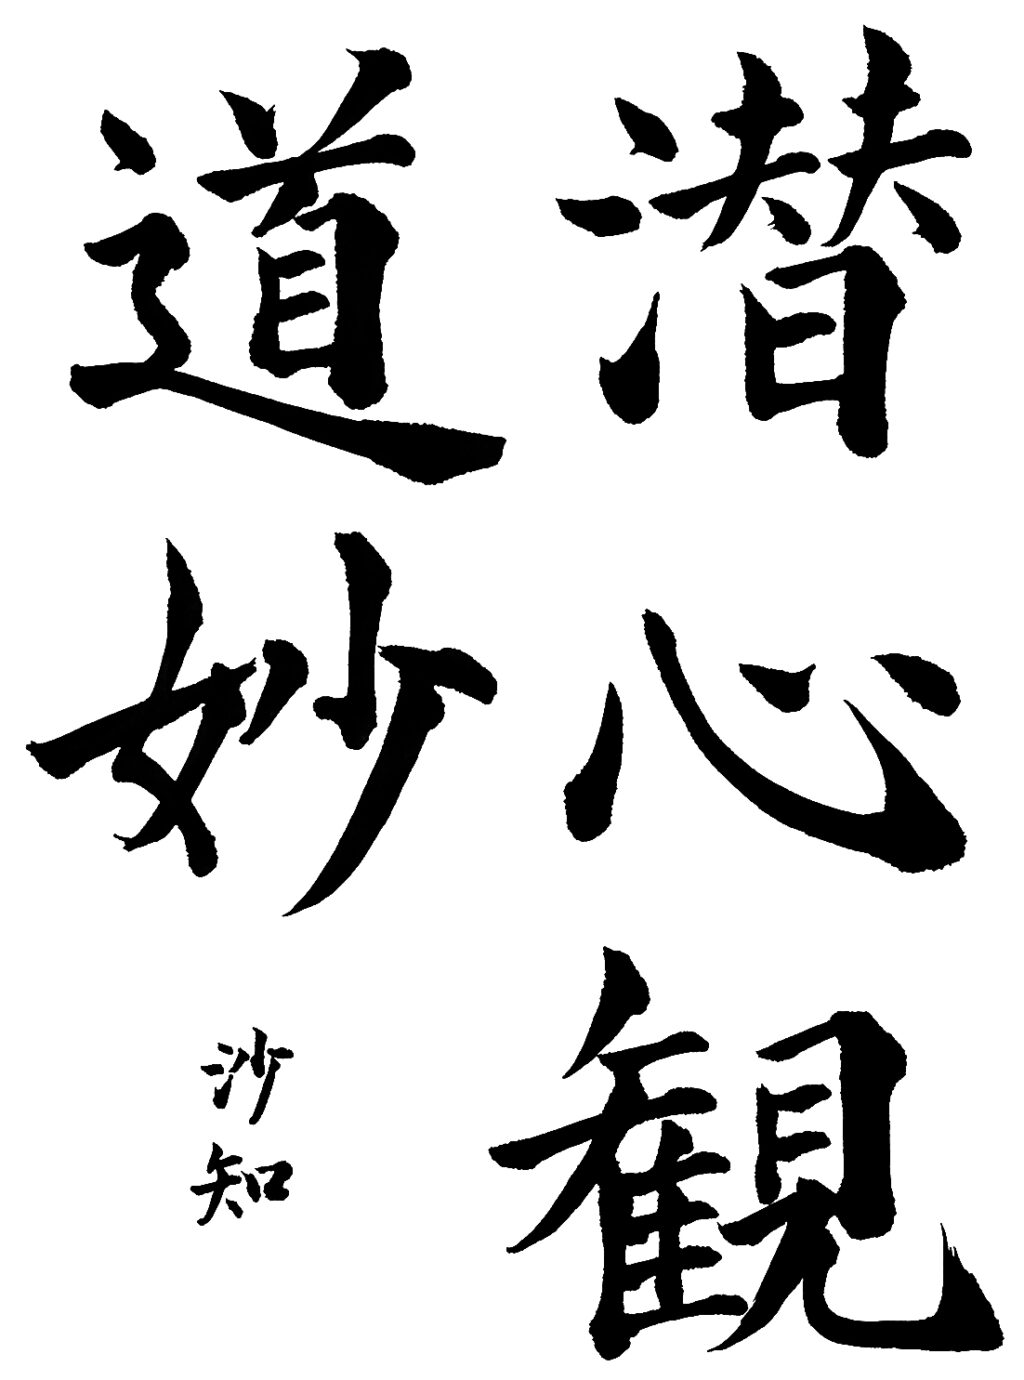 潜心観
道妙
沙知